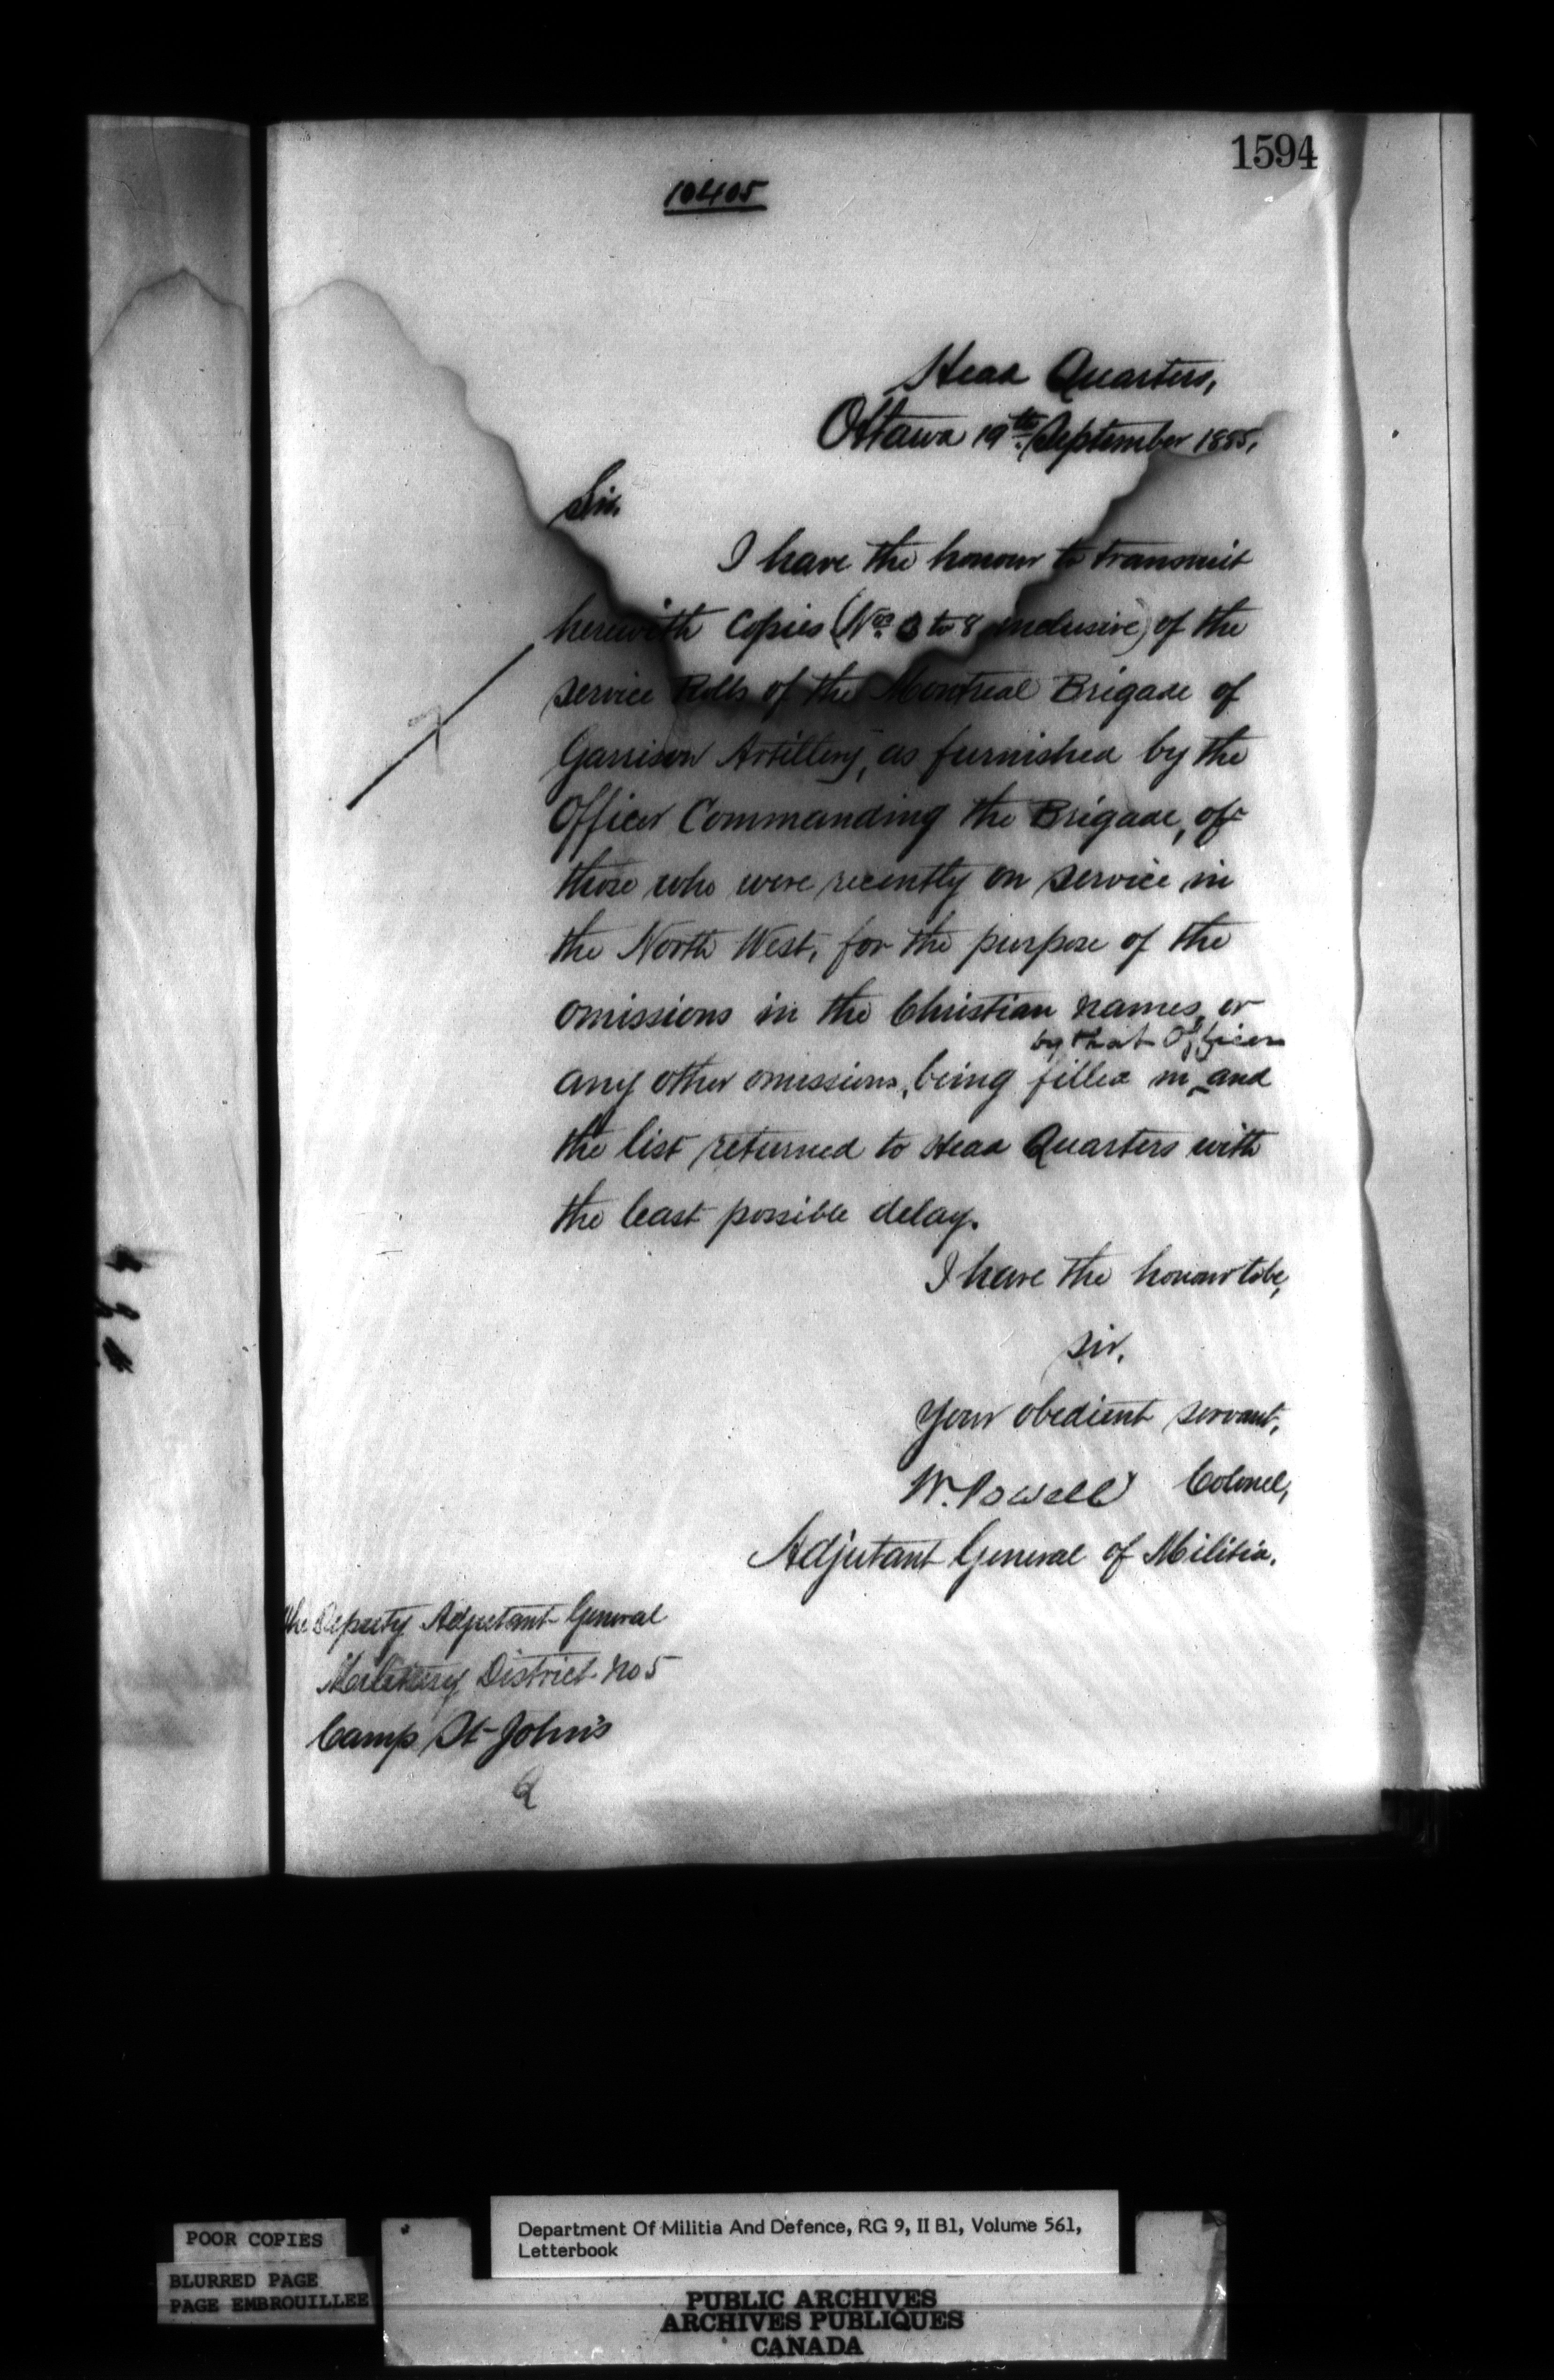 1594
10405
Head Quarters,
Ottawa 19th September 1885,
Sir,
I have the honour to transmit
herewith Copies (Nos. 3 to 8 inclusive) of the
service Rolls of the Montreal Brigade of
Garrison Artillery, as furnished by the
Officer Commanding the Brigade, of
those who were recently on service in
the North West, for the purpose of the
omissions in the Christian names, or
by that Officer
any other omissions, being filled in ‸ and
the list returned to Head Quarters with
the least possible delay.
I have the honour to be,
Sir,
Your obedient servant,
W. Powell Colonel,
Adjutant General of Militia.
The Deputy Adjutant General
Military District No 5
Camp St John's
Q
POOR COPIES
BLURRED PAGE
PAGE EMBROUILLEE
Department Of Militia And Defence, RG 9, II B1, Volume 561,
Letterbook
PUBLIC ARCHIVES
ARCHIVES PUBLIQUES
CANADA